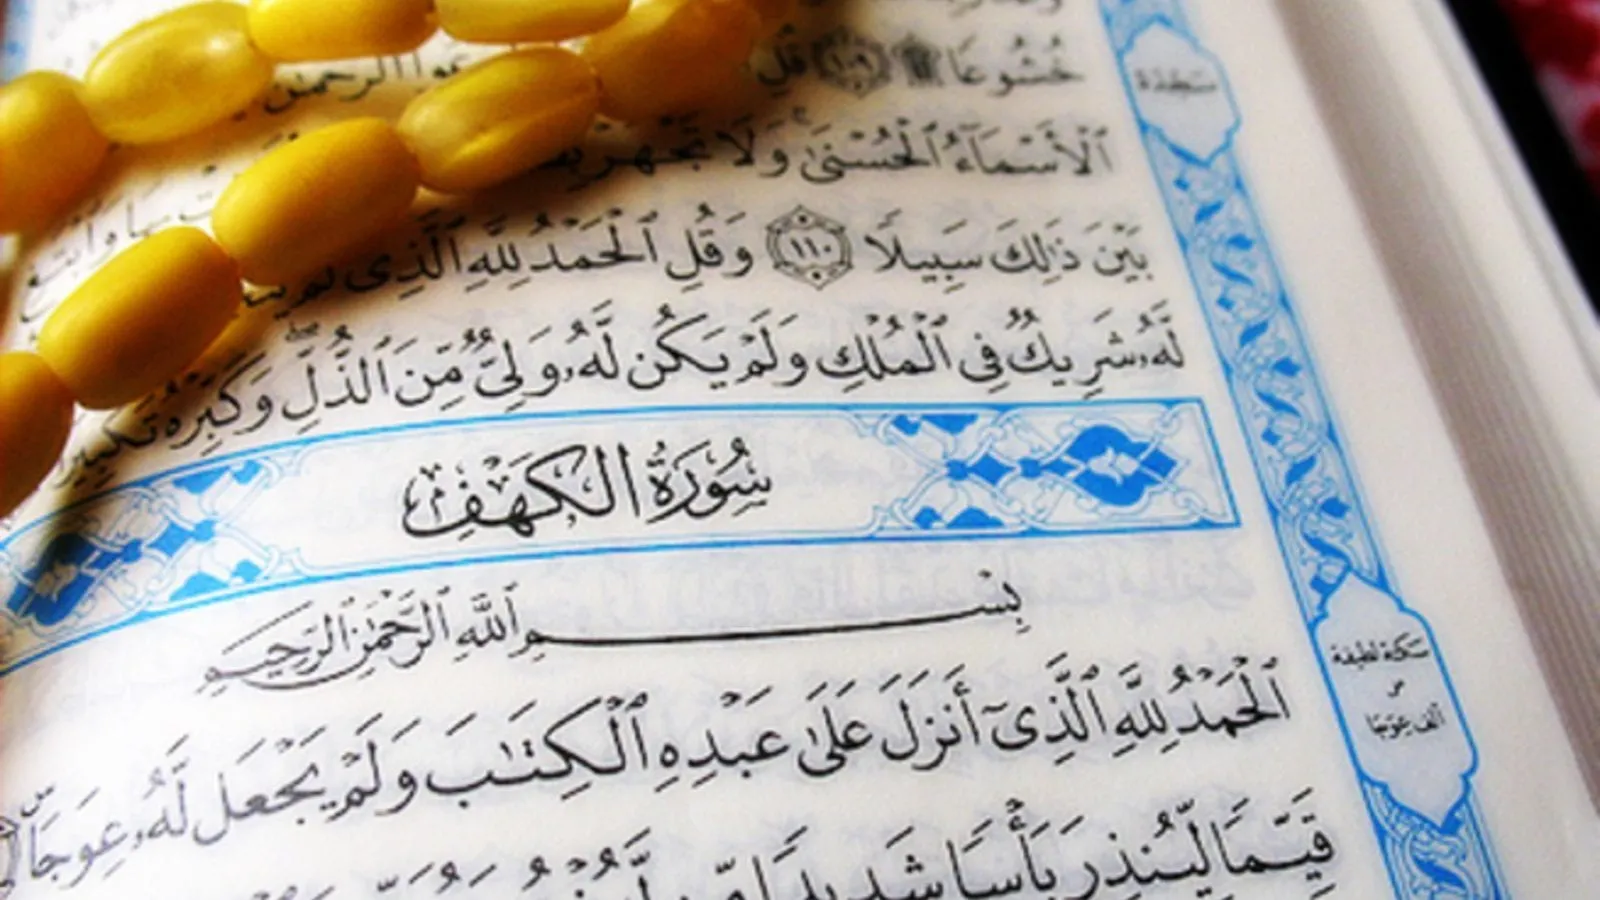 خُشُوعًا ۩ ١٠٩ قُلِ
ٱلْأَسْمَآءُ ٱلْحُسْنَىٰ وَلَا تَجْهَرْ
بَيْنَ ذَٰلِكَ سَبِيلًا ١١٠ وَقُلِ ٱلْحَمْدُ لِلَّهِ ٱلَّذِى لَمْ
لَّهُۥ شَرِيكٌ فِى ٱلْمُلْكِ وَلَمْ يَكُن لَّهُۥ وَلِىٌّ مِّنَ ٱلذُّلِّ وَكَبِّرْهُ تَكْبِيرًا
سُورَةُ الكَهْفِ
بِسْمِ ٱللَّهِ ٱلرَّحْمَٰنِ ٱلرَّحِيمِ
ٱلْحَمْدُ لِلَّهِ ٱلَّذِىٓ أَنزَلَ عَلَىٰ عَبْدِهِ ٱلْكِتَٰبَ وَلَمْ يَجْعَل لَّهُۥ عِوَجَاۜ
قَيِّمًا لِّيُنذِرَ بَأْسًا شَدِيدًا
سجدة
سكتة لطيفة
ألف عوجا